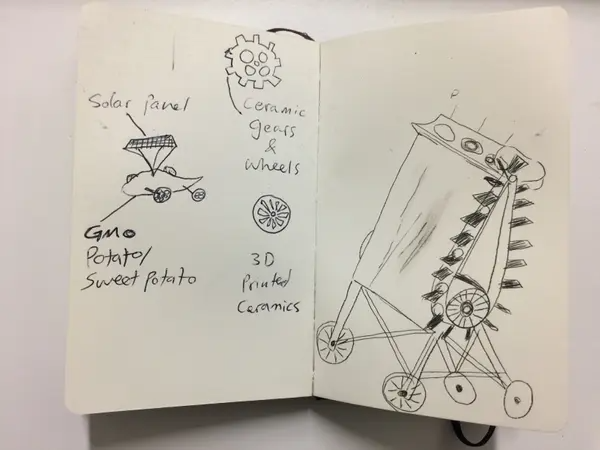 Solar Panel
GMO
Potato/
Sweet Potato
Ceramic
gears
&
wheels
3D
Printed
Ceramics
P